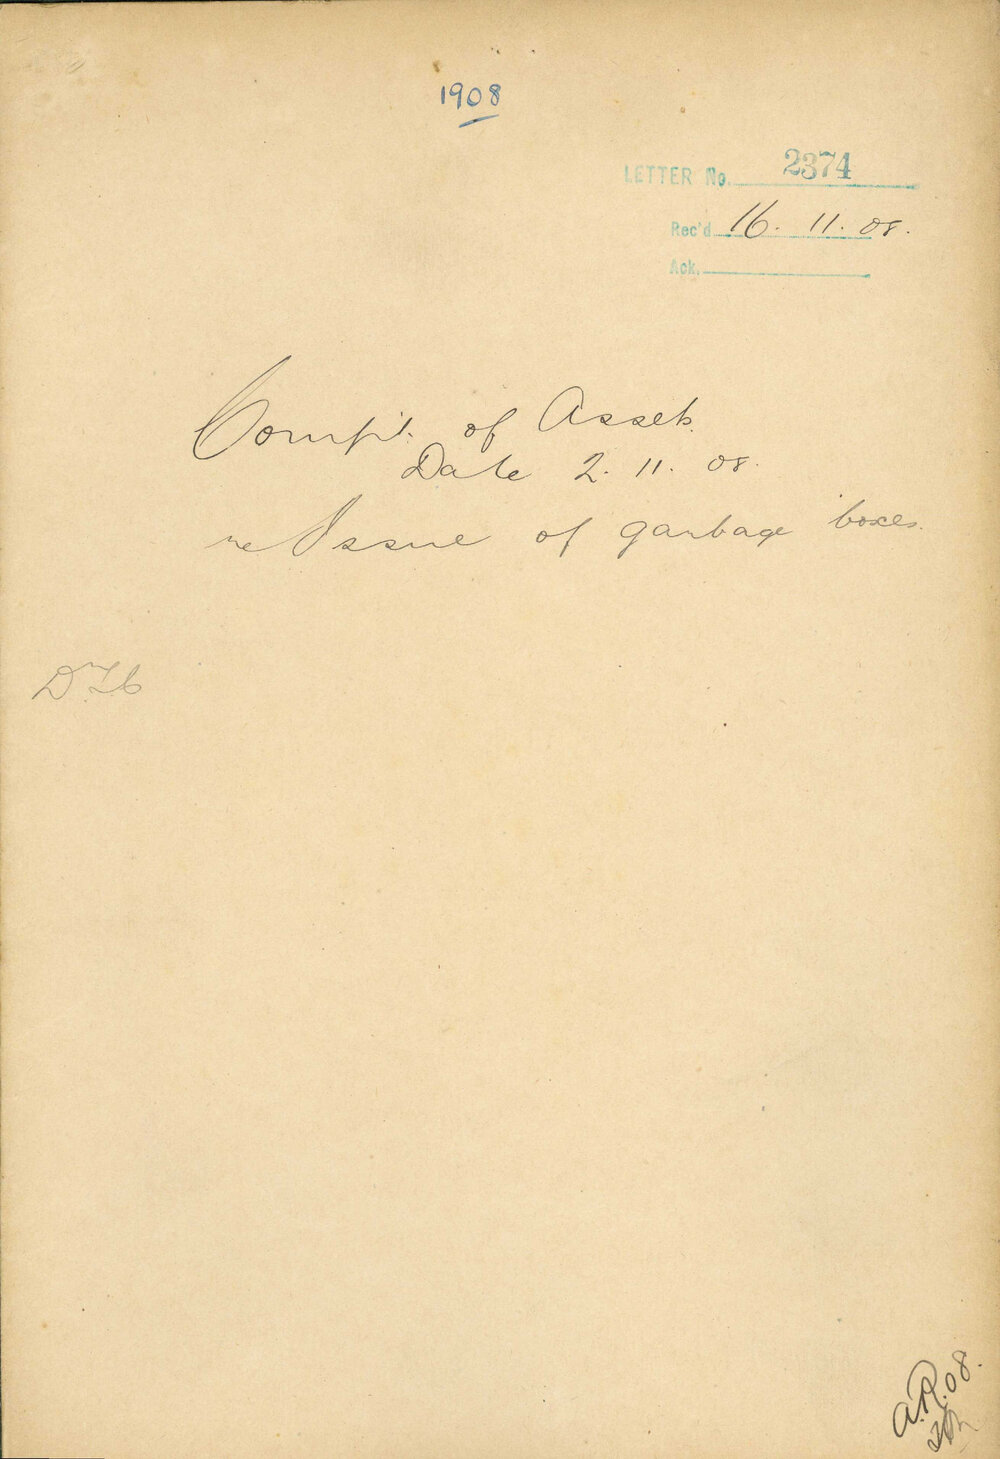 1908
LETTER No. 2374
Rec'd 16. 11. 08.
Ack.
Compt. of Assets.
Date 2. 11. 08.
re Issue of garbage boxes.
A.R. 08.